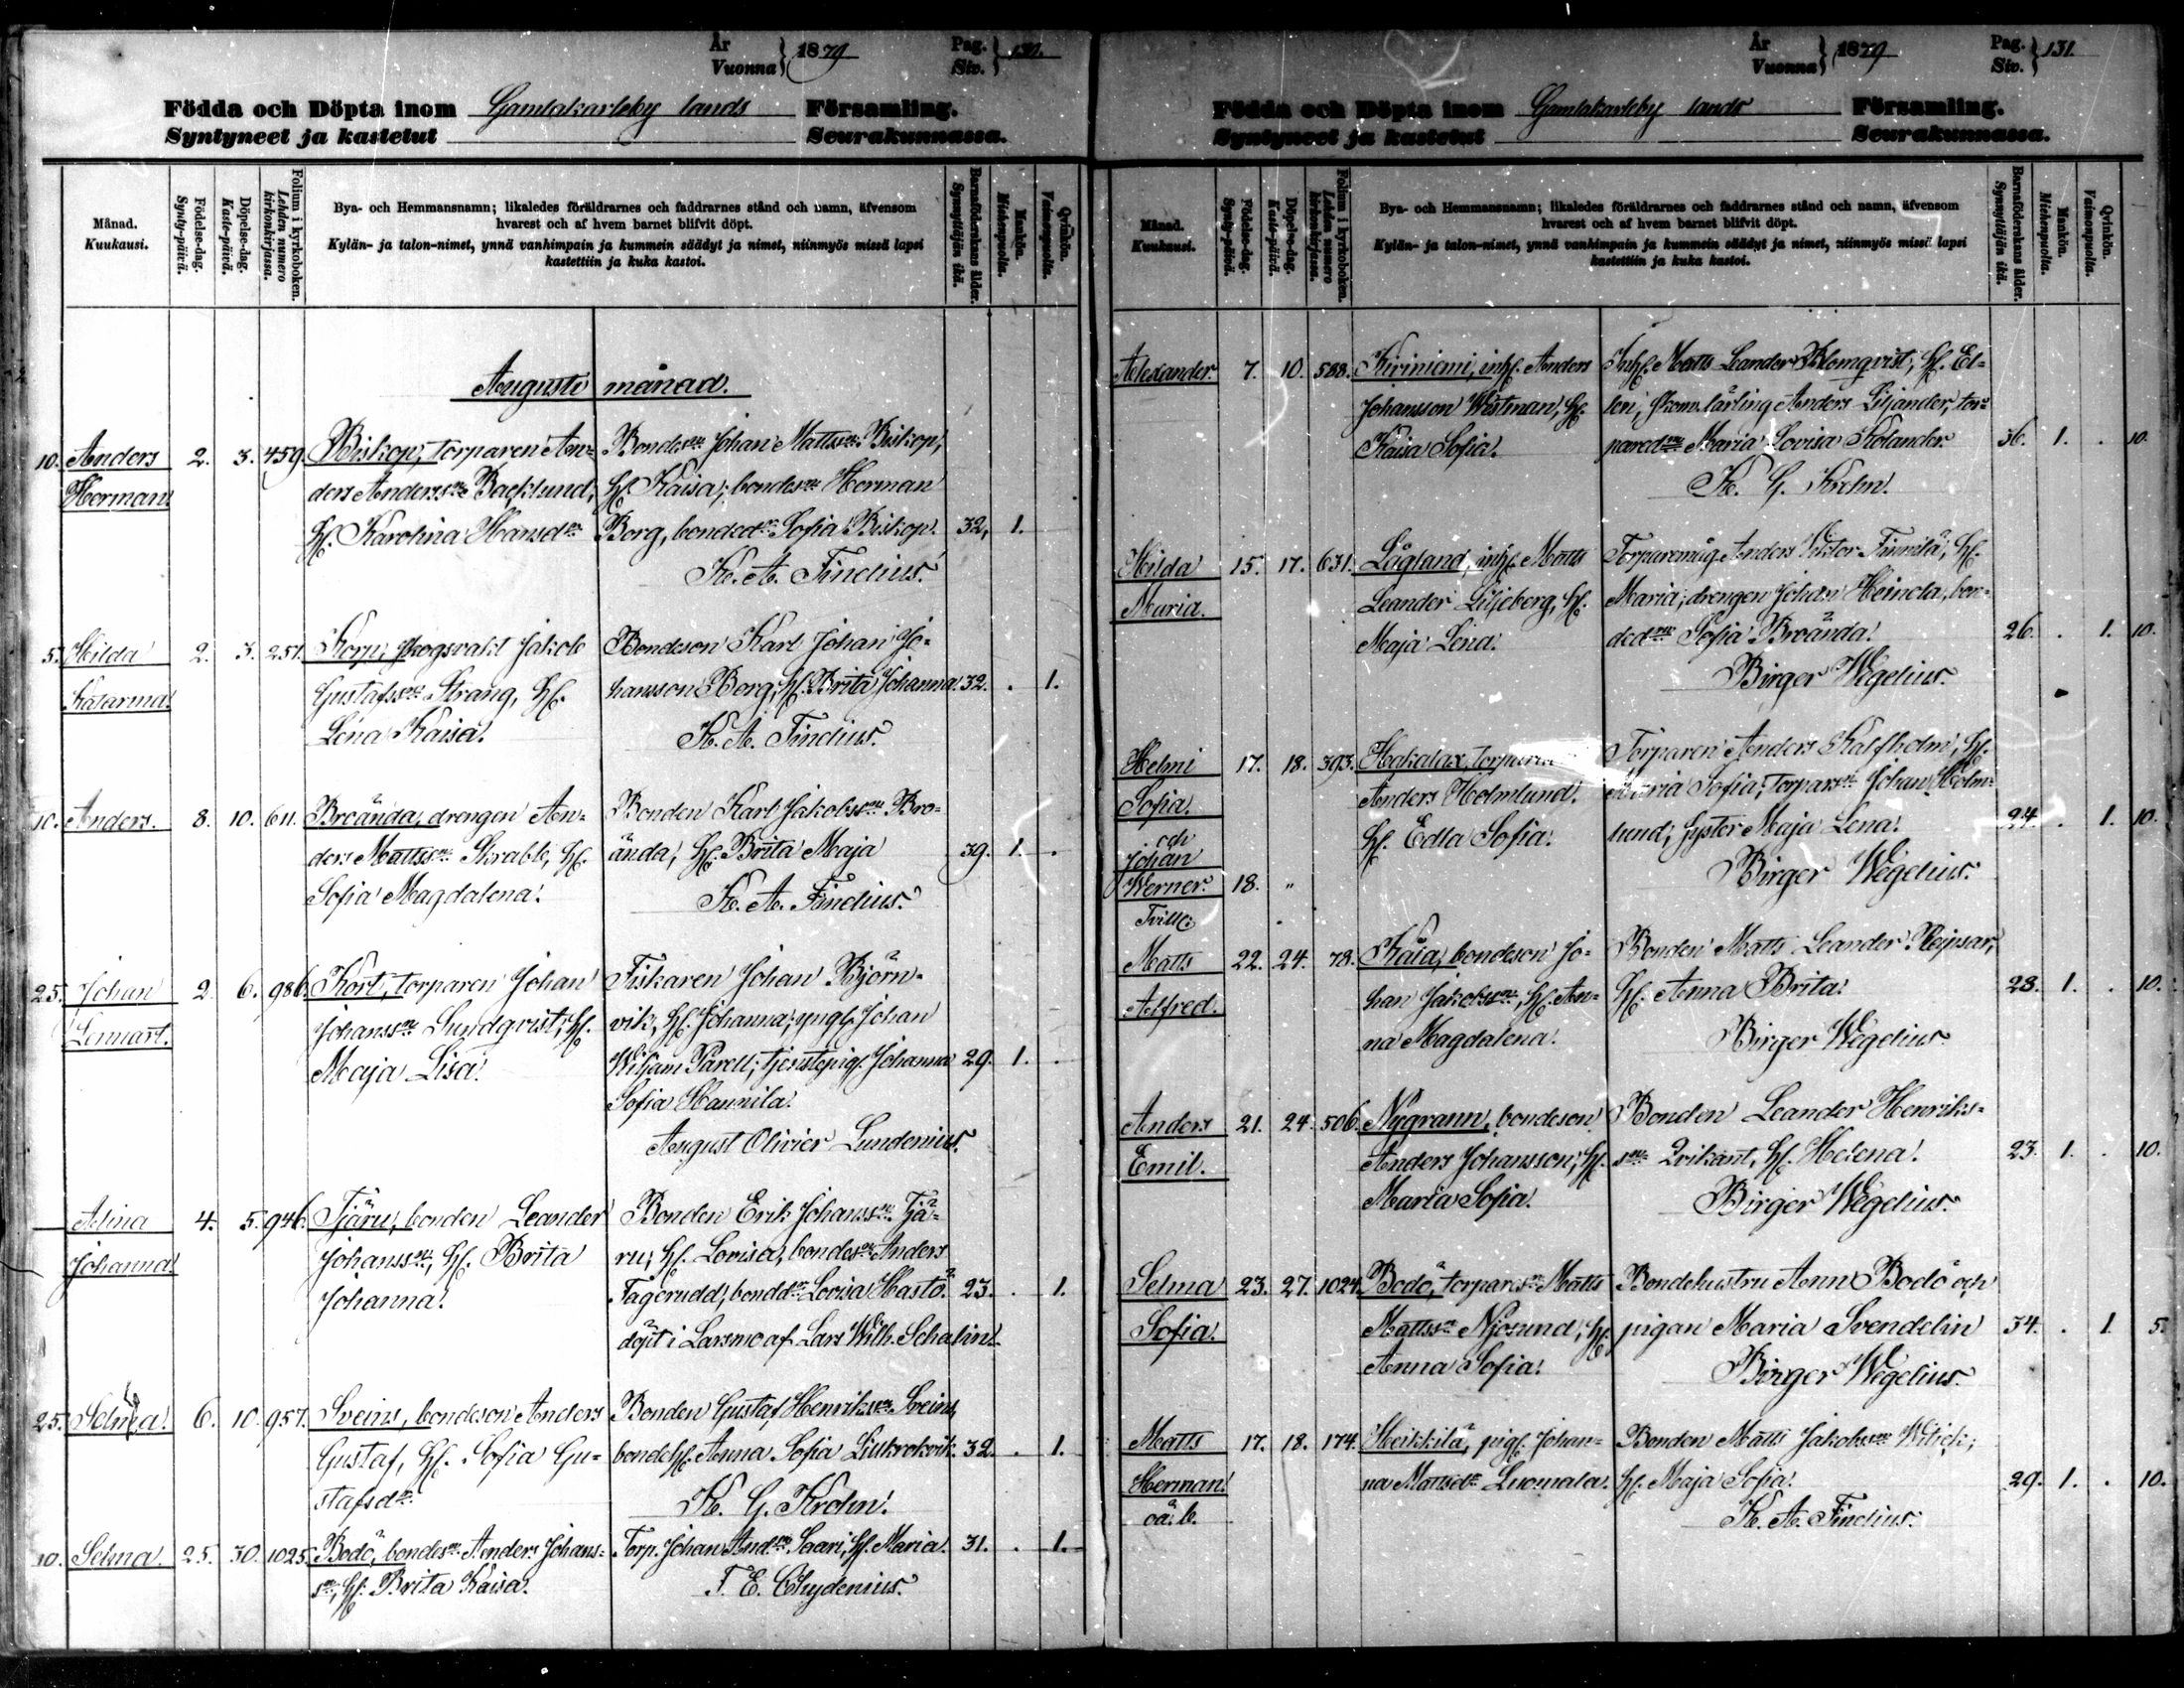 År
Vuonna } 1879 Pag.
Siv. } 130.
Födda och Döpta inom Gamlakarleby lands Församling.
Syntyneet ja kastetut Seurakunnassa.
Månad.
Kuukausi.
Födelse-dag.
Synty-päivä.
Döpelse-dag.
Kaste-päivä.
Folium i kyrkoboken.
Lehden numero
kirkonkirjassa.
Bya- och Hemmansnamn; likaledes föräldrarnes och faddrarnes stånd och namn, äfvensom
hvarest och af hvem barnet blifvit döpt.
Kylän- ja talon-nimet, ynnä vanhimpain ja kummein säädyt ja nimet, niinmyös missä lapsi
kastettiin ja kuka kastoi.
Barnaföderskans ålder.
Synnyttäjän ikä.
Mankön.
Miehenpuolia.
Qvinkön.
Vaimonpuolia.
Augusti månad.
10. Anders 2. 3. 459. Biskop, torparen An- Bondesn Johan Mattssn Biskop,
Herman ders Anderssn Backlund, H. Kaisa; bondesn Herman
H. Karolina Hansdr Borg, bondedr Sofia Biskop. 32, 1.
K. A. Findius.
5. Hilda 2. 3. 251. Korp, skogsvakt Jakob Bondeson Karl Johan Jo-
Katarina. Gustafssn Strang, H. hansson Borg, H. Brita Johanna. 32. . 1.
Lena Kaisa. K. A. Findius.
10. Anders. 8. 10. 611. Broända, drengen An- Bonden Karl Jakobssn Bro-
ders Mattssn Skrabb, H. ända, H. Brita Maja 39. 1. .
Sofia Magdalena. K. A. Findius.
25. Johan 2. 6. 986. Kort, torparen Johan Fiskaren Johan Björn-
Lennart. Johanssn Sundqvist, H. vik, H. Johanna; yngl. Johan
Maja Lisa. Wiljam Parell; tjenstepig. Johanna 29. 1. .
Sofia Hannila.
August Olivier Lundenius.
Alina 4. 5. 946. Tjäru, bonden Leander Bonden Erik Johanssn Tjä-
Johanna. Johanssn, H. Brita ru, H. Lovisa, bondesn Anders
Johanna. Fagerudd, bondedr Lovisa Hastö. 23. . 1.
döpt i Larsmo af Lars Wilh. Schalin.
25. Selma. 6. 10. 957. Sveins, bondeson Anders Bonden Gustaf Henrikssn Sveins,
Gustaf, H. Sofia Gu- bondeH. Anna Sofia 32. . 1.
stafsdr. K. G. Krohn.
10. Selma. 25. 30. 1025. Bodö, bondesn Anders Johans- Torp. Johan Andsn Saari, H. Maria. 31. . 1.
sn, H. Brita Kaisa. T. E. Chydenius.
År
Vuonna } 1879 Pag.
Siv. } 131.
Födda och Döpta inom Gamlakarleby lands Församling.
Syntyneet ja kastetut Seurakunnassa.
Månad.
Kuukausi.
Födelse-dag.
Synty-päivä.
Döpelse-dag.
Kaste-päivä.
Folium i kyrkoboken.
Lehden numero
kirkonkirjassa.
Bya- och Hemmansnamn; likaledes föräldrarnes och faddrarnes stånd och namn, äfvensom
hvarest och af hvem barnet blifvit döpt.
Kylän- ja talon-nimet, ynnä vanhimpain ja kummein säädyt ja nimet, niinmyös missä lapsi
kastettiin ja kuka kastoi.
Barnaföderskans ålder.
Synnyttäjän ikä.
Mankön.
Miehenpuolia.
Qvinkön.
Vaimonpuolia.
Alexander. 7. 10. 588. Kiriniemi, inh. Anders Inh. Matts Leander Blomqvist, H. El-
Johansson Westman, H. len, skom.lärling Anders Liljander, tor-
Kaisa Sofia. paredr Maria Lovisa Kolander. 36. 1. . 10.
K. G. Krohn.
Hilda 15. 17. 631. Lågland, inh. Matts Torparemåg Anders Viktor Finnilä, H.
Maria. Leander Liljeberg, H. Maria; drengen Johan Heinola, bon-
Maja Lena. dedr Sofia Broända. 26. . 1. 10.
Birger Wegelius.
Helmi 17. 18. 393. Hakalax, torparen Torparen Anders Kalfholm, H.
Sofia. Anders Holmlund. Maria Sofia; torparesn Johan Holm-
och H. Edla Sofia. lund, syster Maja Lena. 24. . 1. 10.
Johan Birger Wegelius.
Werner. 18. "
Tvill.
Matts 22. 24. 78. Kåia, bondeson Jo- Bonden Matts Leander Peipsar,
Alfred. han Jakobssn, H. An- H. Anna Brita. 28. 1. . 10.
na Magdalena. Birger Wegelius.
Anders 21. 24. 506. Nygrann, bondeson Bonden Leander Henriks-
Emil. Anders Johansson, H. sn Qvikant, H. Helena. 23. 1. . 10.
Maria Sofia. Birger Wegelius.
Selma 23. 27. 1024. Bodö, torparesn Matts Bondehustru Ann Bodö och
Sofia. Mattssn Nysund, H. pigan Maria Svendelin 34. . 1. 5.
Anna Sofia. Birger Wegelius.
Matts 17. 18. 174. Heikkilä, pig. Johan- Bonden Matts Jakobssn Witick,
Herman. na Mattsdr Luomala. H. Maja Sofia. 29. 1. . 10.
oä. b. K. A. Findius.